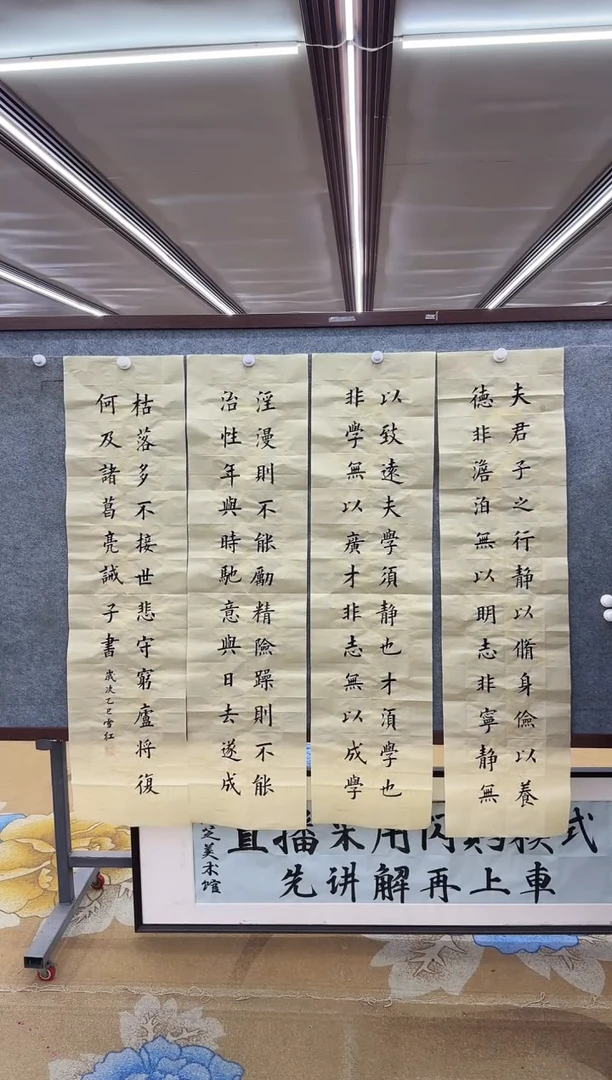 夫君子之行静以脩身儉以養
德非澹泊無以明志非寧静無
以致遠夫學須静也才湏學也
非學無以廣才非志無以成學
淫漫則不能勵精險躁則不能
治性年與時馳意與日去遂成
枯落多不接世悲守窮廬將復
何及諸葛亮誡子書
歲次乙巳雪红
直播采用闪购模式
先讲解再上車
芝美术馆